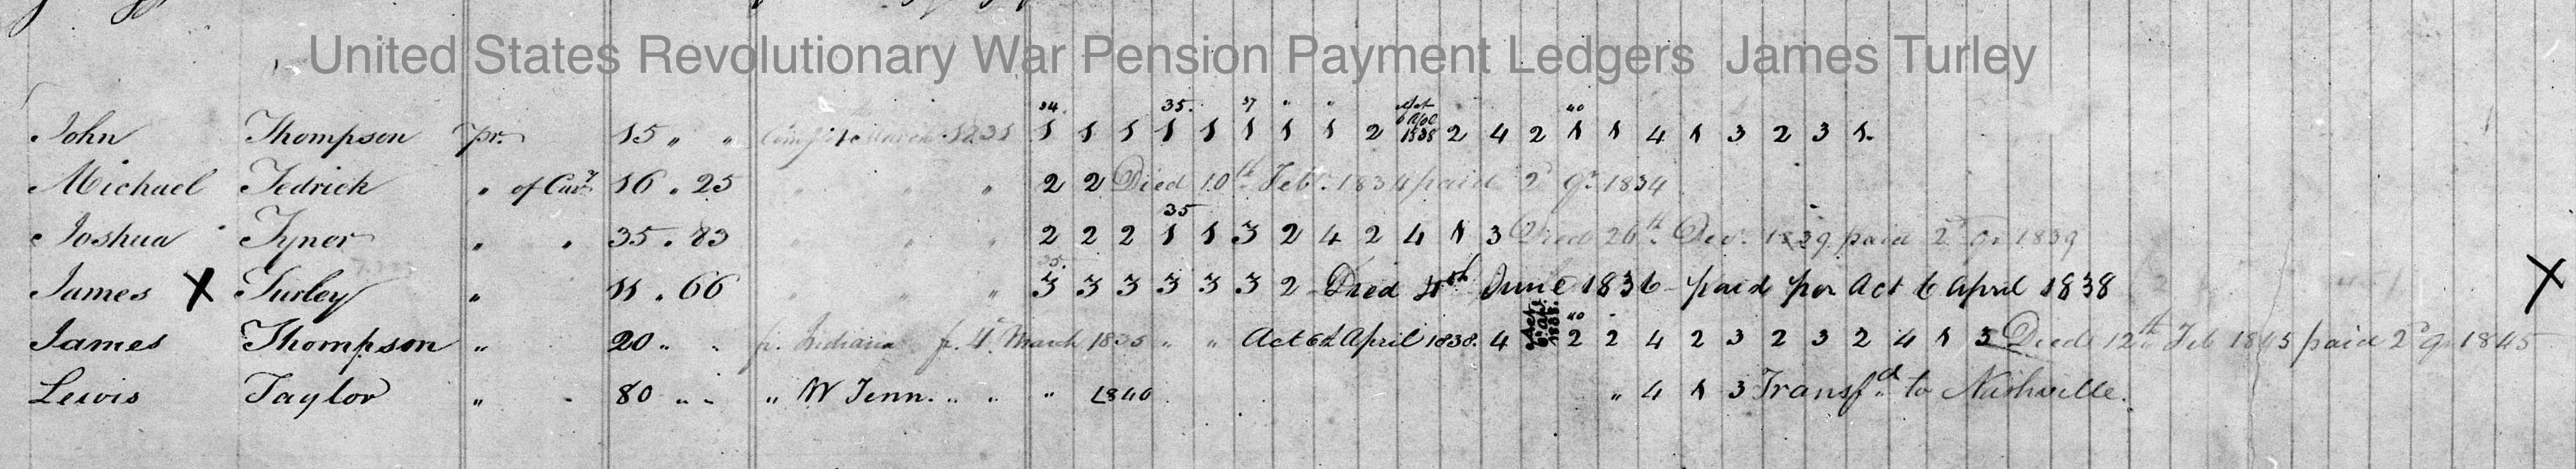 United States Revolutionary War Pension Payment Ledgers James Turley
34. 35. 37 " " Act 6 Apl 1838 40
John Thompson Pr. 15 " " March 1831 1 1 1 1 1 1 1 1 2 2 4 2 1 1 4 1 3 2 3 1.
Michael Tedrick " of Cavy 16 . 25 " " " 2 2 Died 10th Feby. 1834 paid 2d qr 1834
35
Joshua Tyner " " 35 . 83 " " " 2 2 2 1 1 3 2 4 2 4 1 3 Died 26th Decr. 1839 paid 2d qr 1839
35.
James X Turley " 11 . 66 " " " 3 3 3 3 3 3 2 Died 4th June 1836 - paid per Act 6 April 1838 X
James Thompson " 20 " " fr. Indiana fr. 4 March 1835 " " Act 6th April 1838. 4 Act 6 Apl. 1838. 40 2 2 4 2 3 2 3 2 4 1 3 Died 12th Feb 1845 paid 2d qr 1845
Lewis Taylor " - 80 " " " W Tenn. " " " 1840 " 4 1 3 Transfd to Nashville.